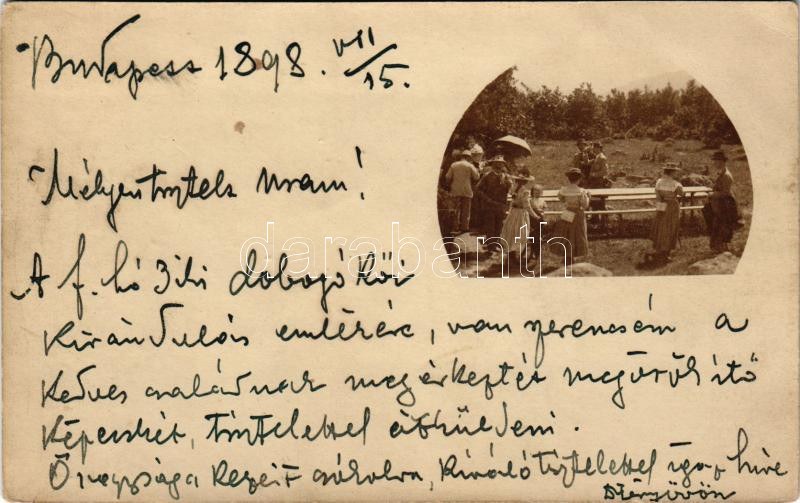 Budapest 1898. VII/15.
Mélyen tisztelt Uram!
A f. hó 3iki dobogókői
kirándulás emlékére, van szerencsém a
kedves családnak megérkeztét megörökítő
képecskét, tisztelettel átküldeni.
Őnagysága kezeit csókolva, kiváló tisztelettel igaz híve
darabanth